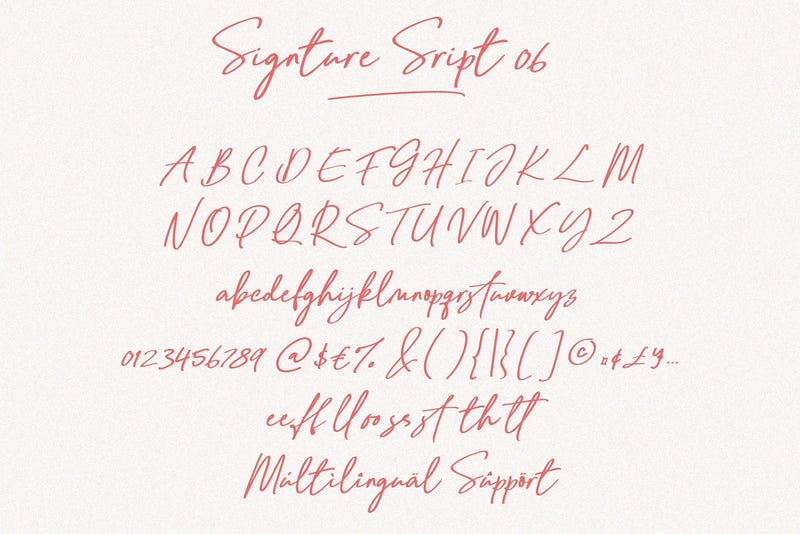 Signture Sript 06
A B C D E F G H I J K L M
N O P Q R S T U V W X Y Z
abcdefghijklmnopqrstuvwxyz
0123456789 @$€% &(){|}[]©¤¢£¥...
ee ff ll oo sr st th tt
Múltilinguäl Sûppört